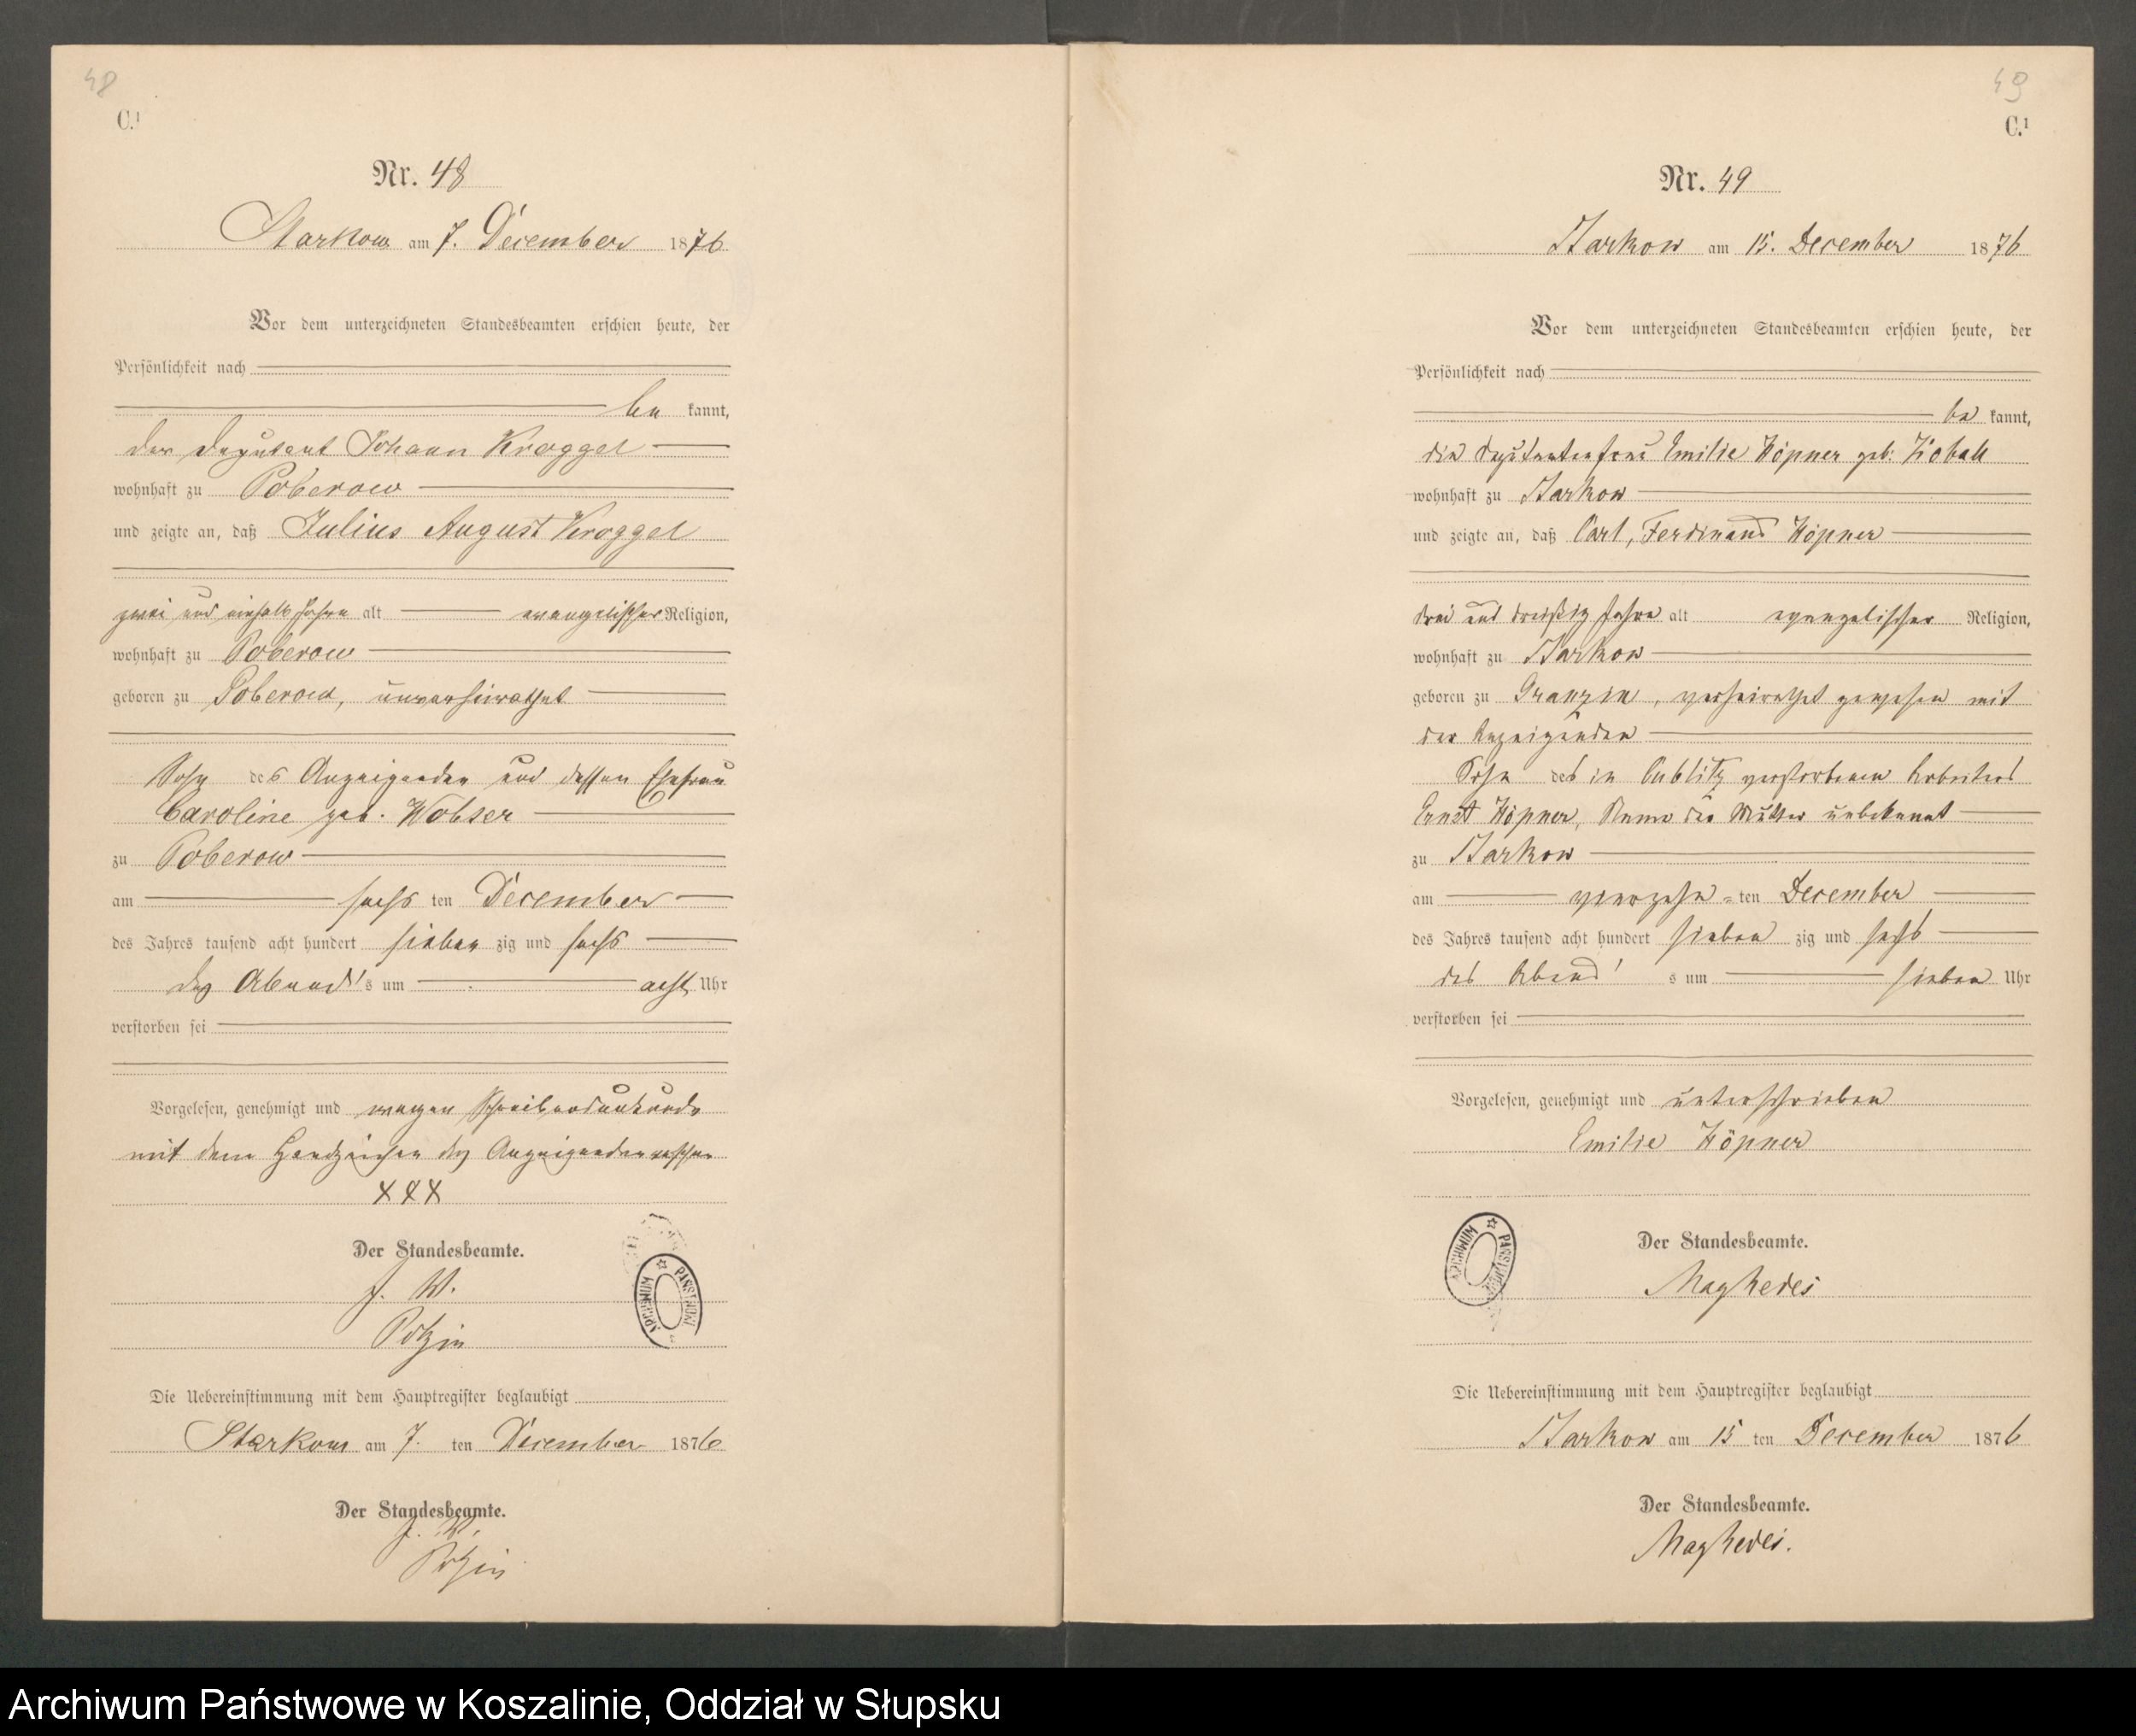 48
C.¹
Nr. 48
Starkow am 7. December 1876
Vor dem unterzeichneten Standesbeamten erschien heute, der
Persönlichkeit nach
be kannt,
der Deputant Johann Kroggel
wohnhaft zu Poberow
und zeigte an, daß Julius August Kroggel
zwei und einhalb Jahre alt evangelischer Religion,
wohnhaft zu Poberow
geboren zu Poberow, unverheirathet
Sohn des Anzeigenden und dessen Ehefrau
Caroline geb. Wobser
zu Poberow
am sechs ten December
des Jahres tausend acht hundert sieben zig und sechs
des Abend's um acht Uhr
verstorben sei
Vorgelesen, genehmigt und wegen Schreibensunkunde
mit dem Handzeichen des Anzeigenden versehen
XXX
Der Standesbeamte.
J. V.
Die Uebereinstimmung mit dem Hauptregister beglaubigt
Starkow am 7. ten December 1876
Der Standesbeamte.
J. V.
49
C.¹
Nr. 49
Starkow am 15. December 1876
Vor dem unterzeichneten Standesbeamten erschien heute, der
Persönlichkeit nach
be kannt,
die Deputantenfrau Emilie Höpner geb.
wohnhaft zu Starkow
und zeigte an, daß Carl, Ferdinand Höpner
drei und dreißig Jahre alt evangelischer Religion,
wohnhaft zu Starkow
geboren zu Granzin, verheirathet gewesen mit
der Anzeigenden
Sohn des in Cublitz verstorbenen Arbeiters
Ernst Höpner, Name der Mutter unbekannt
zu Starkow
am vierzehn-ten December
des Jahres tausend acht hundert sieben zig und sechs
des Abend's um sieben Uhr
verstorben sei
Vorgelesen, genehmigt und unterschrieben
Emilie Höpner
Der Standesbeamte.
ARCHIWUM PAŃSTWOWE
Die Uebereinstimmung mit dem Hauptregister beglaubigt
Starkow am 15 ten December 1876
Der Standesbeamte.
Archiwum Państwowe w Koszalinie, Oddział w Słupsku